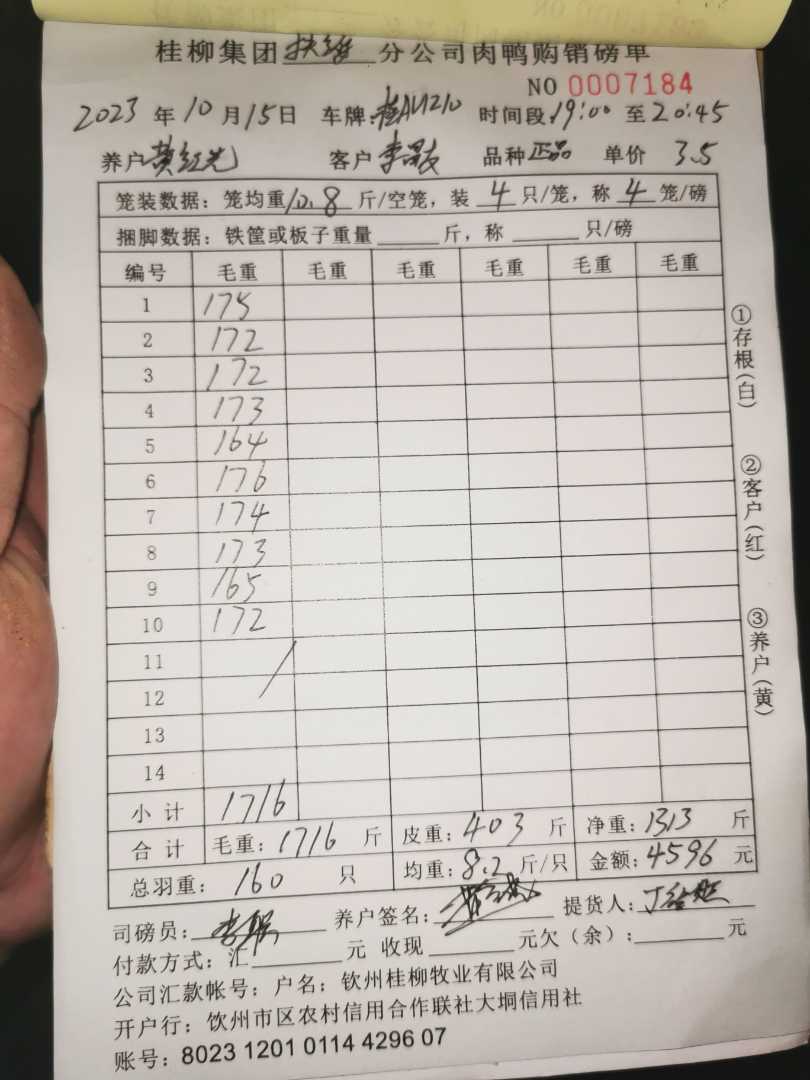 桂柳集团扶绥分公司肉鸭购销磅单
NO 0007184
2023年10月15日 车牌:桂AU1210 时间段:19:00至20:45
养户黄红光 客户李 品种正品 单价 3.5
笼装数据:笼均重10.8斤/空笼,装4只/笼,称4笼/磅
捆脚数据:铁筐或板子重量____斤,称____只/磅
编号 毛重 毛重 毛重 毛重 毛重 毛重
1 175
2 172
3 172
4 173
5 164
6 176
7 174
8 173
9 165
10 172
11
12
13
14
小计 1716
合计 毛重:1716斤 皮重:403斤 净重:1313斤
总羽重:160只 均重:8.2斤/只 金额:4596元
①存根(白)
②客户(红)
③养户(黄)
司磅员: 养户签名: 提货人:
付款方式:汇____元 收现____元欠(余):____元
公司汇款帐号:户名:钦州桂柳牧业有限公司
开户行:饮州市区农村信用合作联社大垌信用社
账号:8023 1201 0114 4296 07